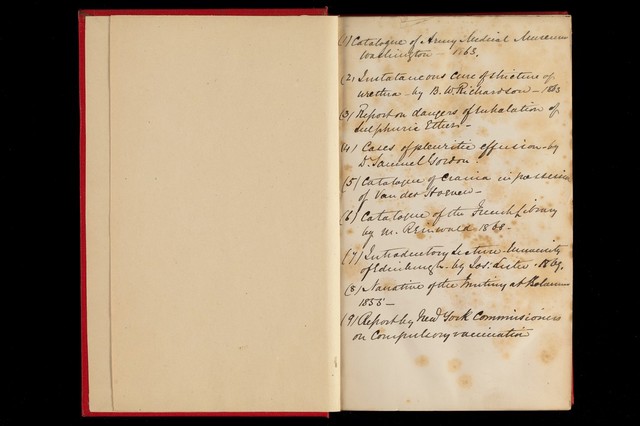 (1) Catalogue of Army Medical Museum
Washington - 1863.
(2) Instataneous cure of stricture of
urethra - by B. W. Richardson - 1863
(3) Report on dangers of inhalation of
Sulphuric Ether -
(4) Cases of pleuritic effusion - by
Dr. Samuel Gordon.
(5) Catalogue of Crania in possession
of Van der Hoeven -
(6) Catalogue of the French Library
by M. Reinwald 1868 -
(7) Introductory Lecture University
of Edinburgh - by Jos: Lister - 1869.
(8) Narrative of the Mutiny at
1855 -
(9) Report by New York Commissioners
on Compulsory vaccination